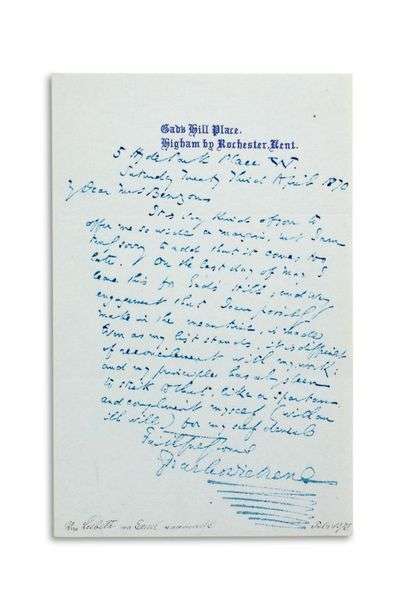 Gad's Hill Place.
Higham by Rochester, Kent.
5 Hyde Park Place W.
Saturday Twenty Third April 1870
My Dear Mrs Benzon
It is very kind of you to
offer me so wide a margin, but I am
truly sorry to add that it comes too
late. On the last day of May I
leave this for Gad's Hill; and every
engagement that I can possibly
make in the meantime is made.
Even as my list stands, it is difficult
of reconcilement with my work;
and my principles
to stick to that, like a Spartan
and compliment myself (with an
ill will) for my self denial
Faithfully yours
Charles Dickens